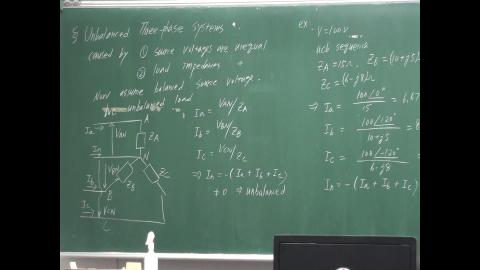 § Unbalanced Three-phase systems.
caused by ① source voltages are unequal
② load impedances "
Now assume balanced source voltage.
unbalanced load
Ia = VAN/ZA
Ib = VBN/ZB
Ic = VCN/ZC
⇒ In = -(Ia + Ib + Ic)
≠ 0 ⇒ unbalanced
Ia
A
VAN
ZA
In
N
VBN
ZB
ZC
Ib
B
Ic
VCN
C
ex. V=100V
acb sequence
ZA = 15Ω, ZB = (10+j5)Ω
ZC = (6-j8)Ω
⇒ Ia = 100∠0° / 15 = 6.67
Ib = 100∠120° / 10+j5 = 8
Ic = 100∠-120° / 6-j8
In = -(Ia + Ib + Ic)